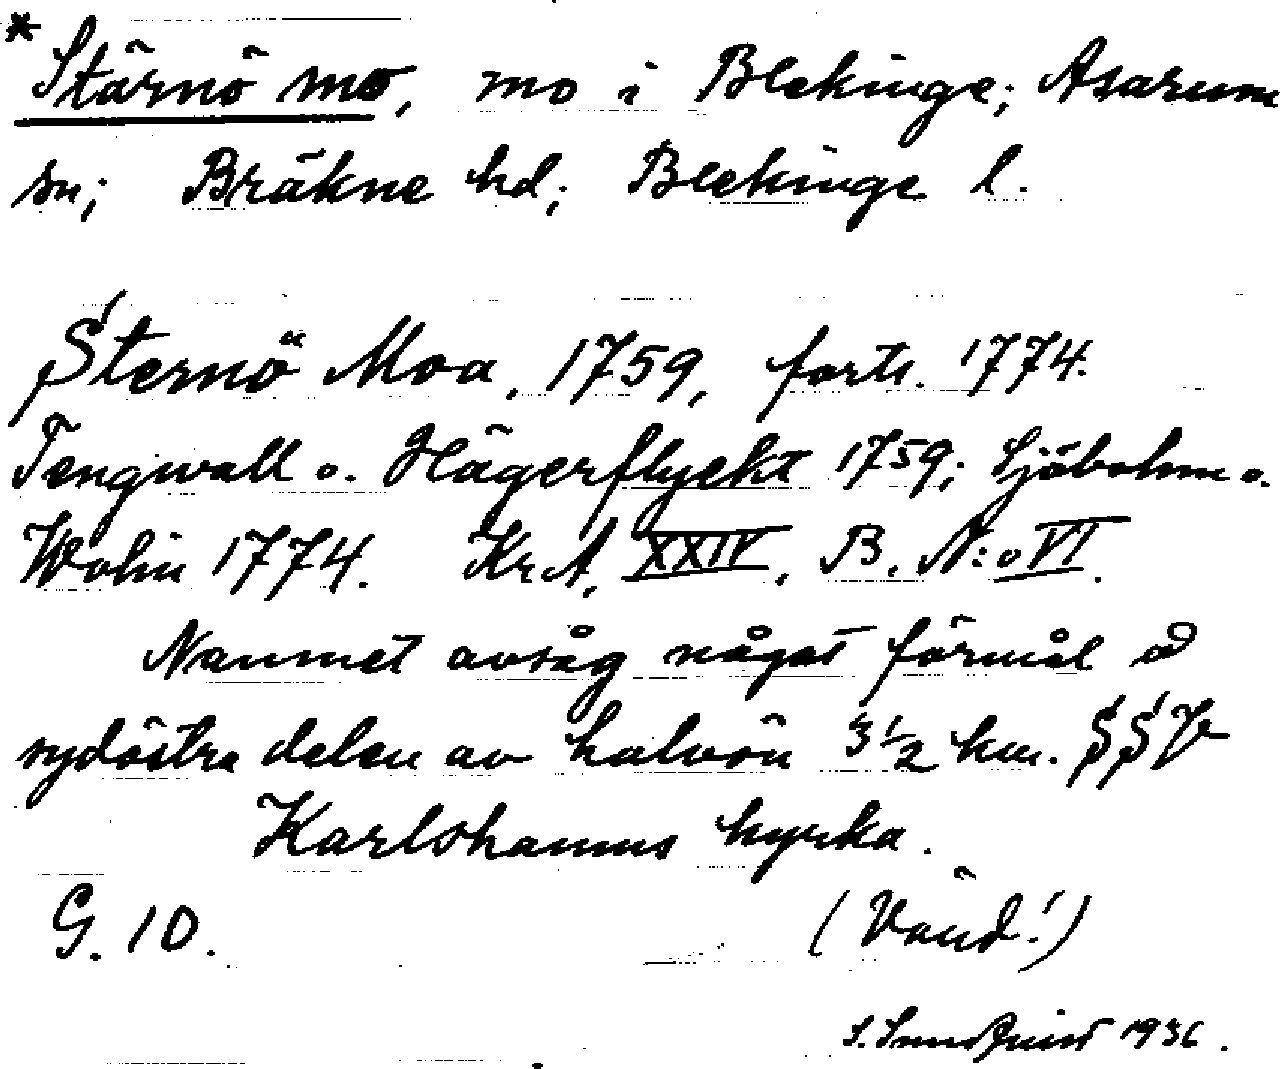 * Stärnö mo, mo i Blekinge; Asarum
sn; Bräkne hd; Blekinge l.
Sternö Moa, 1759, forts. 1774.
Tengwall o. Hägerflyckt 1759; Sjöbohm o.
Wohin 1774. KrA, XXIV, B. N:o VI.
Namnet avsåg något förmål å
sydöstra delen av halvön 3 1/2 km. SSV
Karlshamns kyrka.
G. 10. (Vänd!)
S. Sundquist 1936.